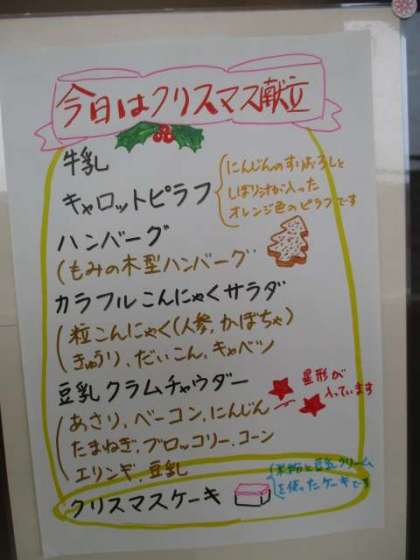 今日はクリスマス献立
牛乳
キャロットピラフ
にんじんのすりおろしと
しぼり汁が入った
オレンジ色のピラフです
ハンバーグ
(もみの木型ハンバーグ
カラフルこんにゃくサラダ
(粒こんにゃく(人参、かぼちゃ)
きゅうり、だいこん、キャベツ
豆乳クラムチャウダー
星形が
入っています
(あさり、ベーコン、にんじん
たまねぎ、ブロッコリー、コーン
エリンギ、豆乳
クリスマスケーキ
(米粉と豆乳クリーム
を使ったケーキです